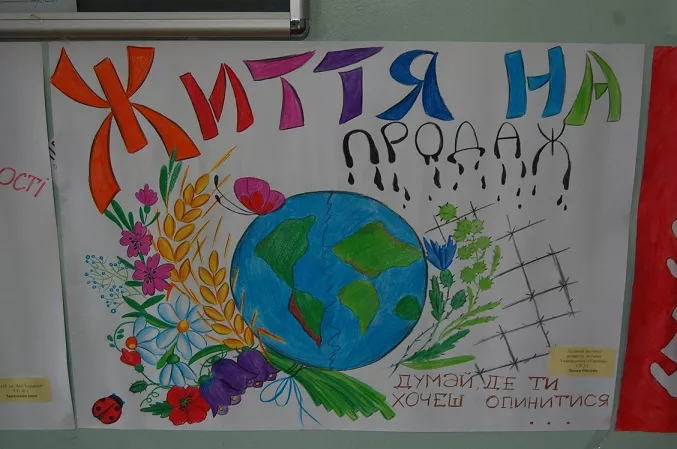 ЖИТТЯ НА
ПРОДАЖ
ДУМАЙ, ДЕ ТИ
ХОЧЕШ ОПИНИТИСЯ
...
ОСТІ